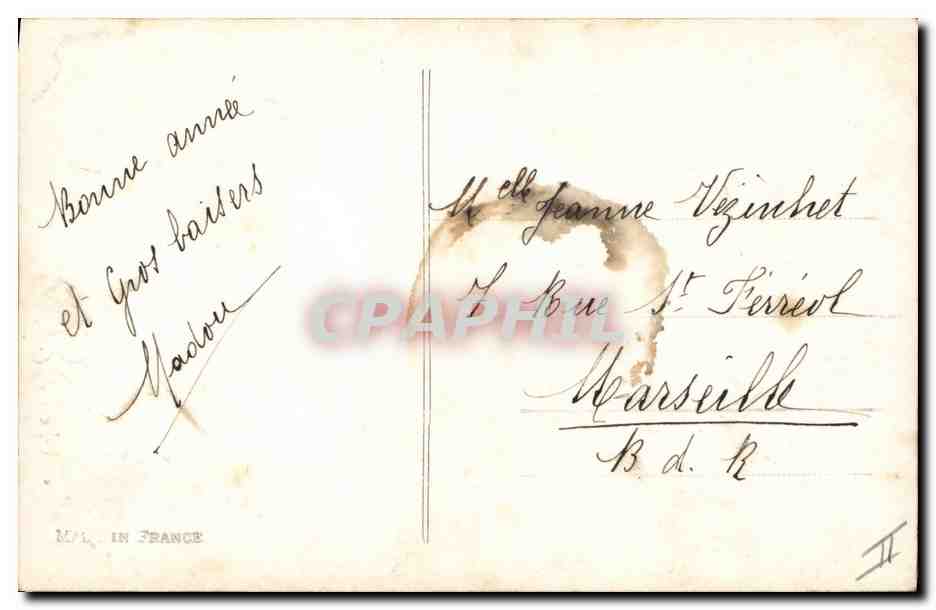 Bonne année
et Gros baisers
Madou
Melle Jeanne Vézinhet
7 Rue St. Ferréol
Marseille
B. d. R
MADE IN FRANCE
CPAPHIL
II